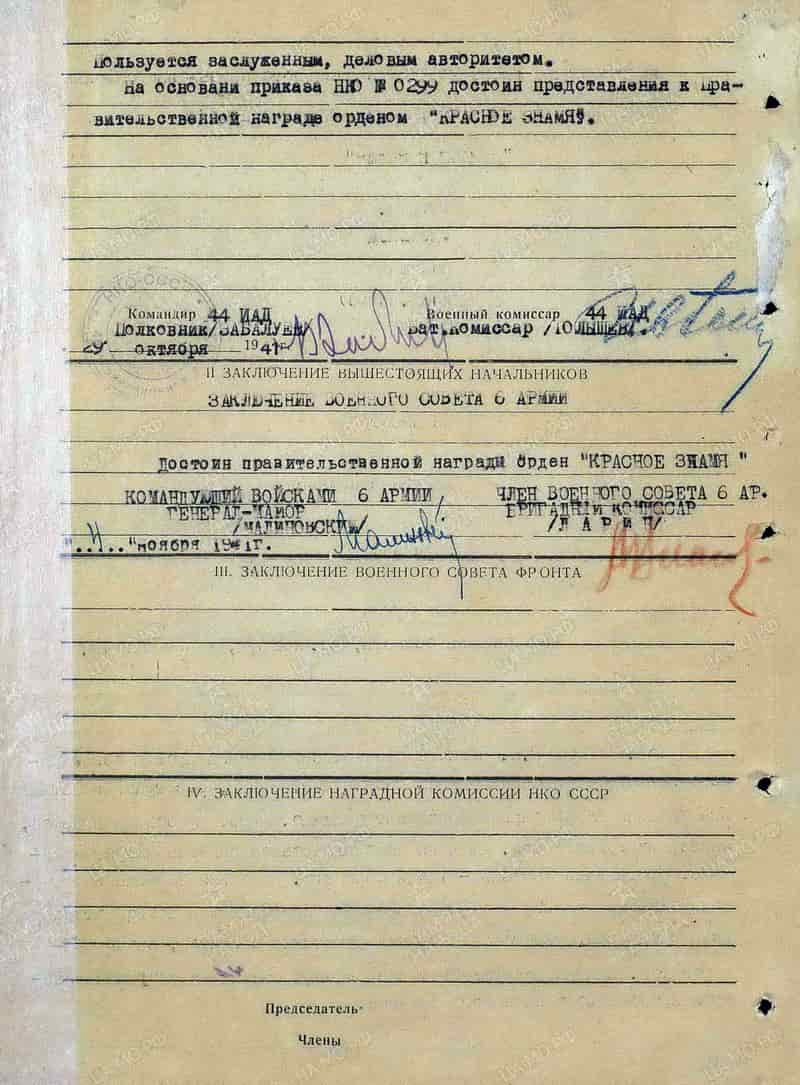 пользуется заслуженным, деловым авторитетом.
На основани приказа НКО № 0299 достоин представления к пра-
вительственной награде орденом "КРАСНОЕ ЗНАМЯ".
Командир 44 ИАД Военный комиссар 44 ИАД
Полковник/ЗАБАЛУЕВ/ Бат.комиссар
октября 1941г
II ЗАКЛЮЧЕНИЕ ВЫШЕСТОЯЩИХ НАЧАЛЬНИКОВ
ЗАКЛЮЧЕНИЕ ВОЕННОГО СОВЕТА 6 АРМИИ
Достоин правительственной награды Орден "КРАСНОЕ ЗНАМЯ "
КОМАНДУЮЩИЙ ВОЙСКАМИ 6 АРМИИ ЧЛЕН ВОЕННОГО СОВЕТА 6 АР.
ГЕНЕРАЛ-МАЙОР БРИГАДНЫЙ КОМИССАР
/МАЛИНОВСКИЙ/ /Л А Р И Н/
"ноября 1941г.
III. ЗАКЛЮЧЕНИЕ ВОЕННОГО СОВЕТА ФРОНТА
IV. ЗАКЛЮЧЕНИЕ НАГРАДНОЙ КОМИССИИ НКО СССР
Председатель
Члены